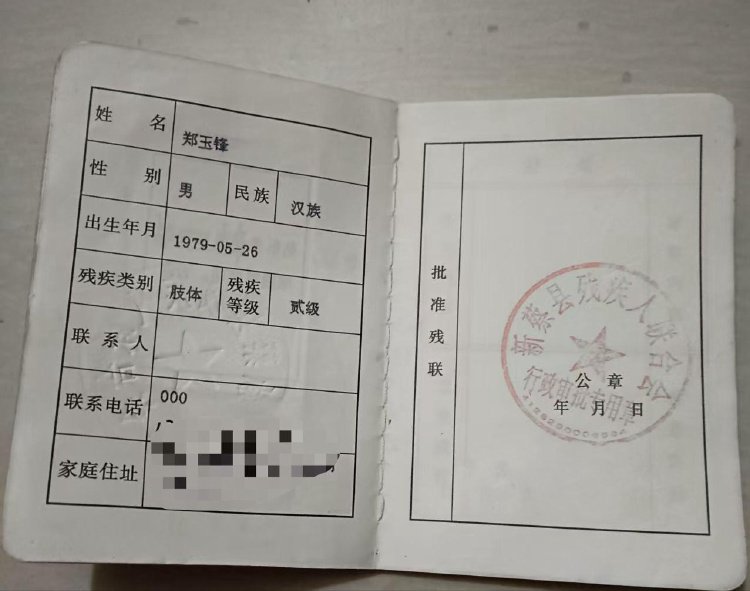 姓名 郑玉锋
性别 男 民族 汉族
出生年月 1979-05-26
残疾类别 肢体 残疾等级 贰级
联系人
联系电话 000
家庭住址
批准残联
新蔡县残疾人联合会
行政审批专用章
公章
年月日